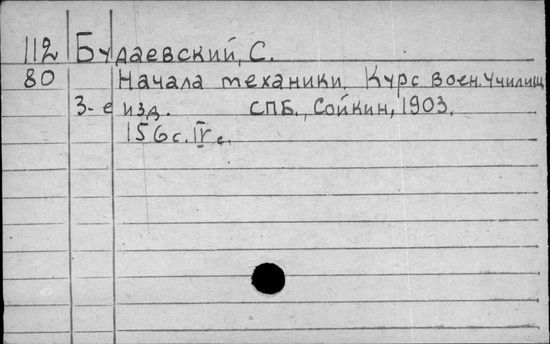 112 Будаевский, С.
80 Начала механики. Курс воен. училищ
3-е изд. СПБ., Сойкин, 1903.
156 с. IV с.